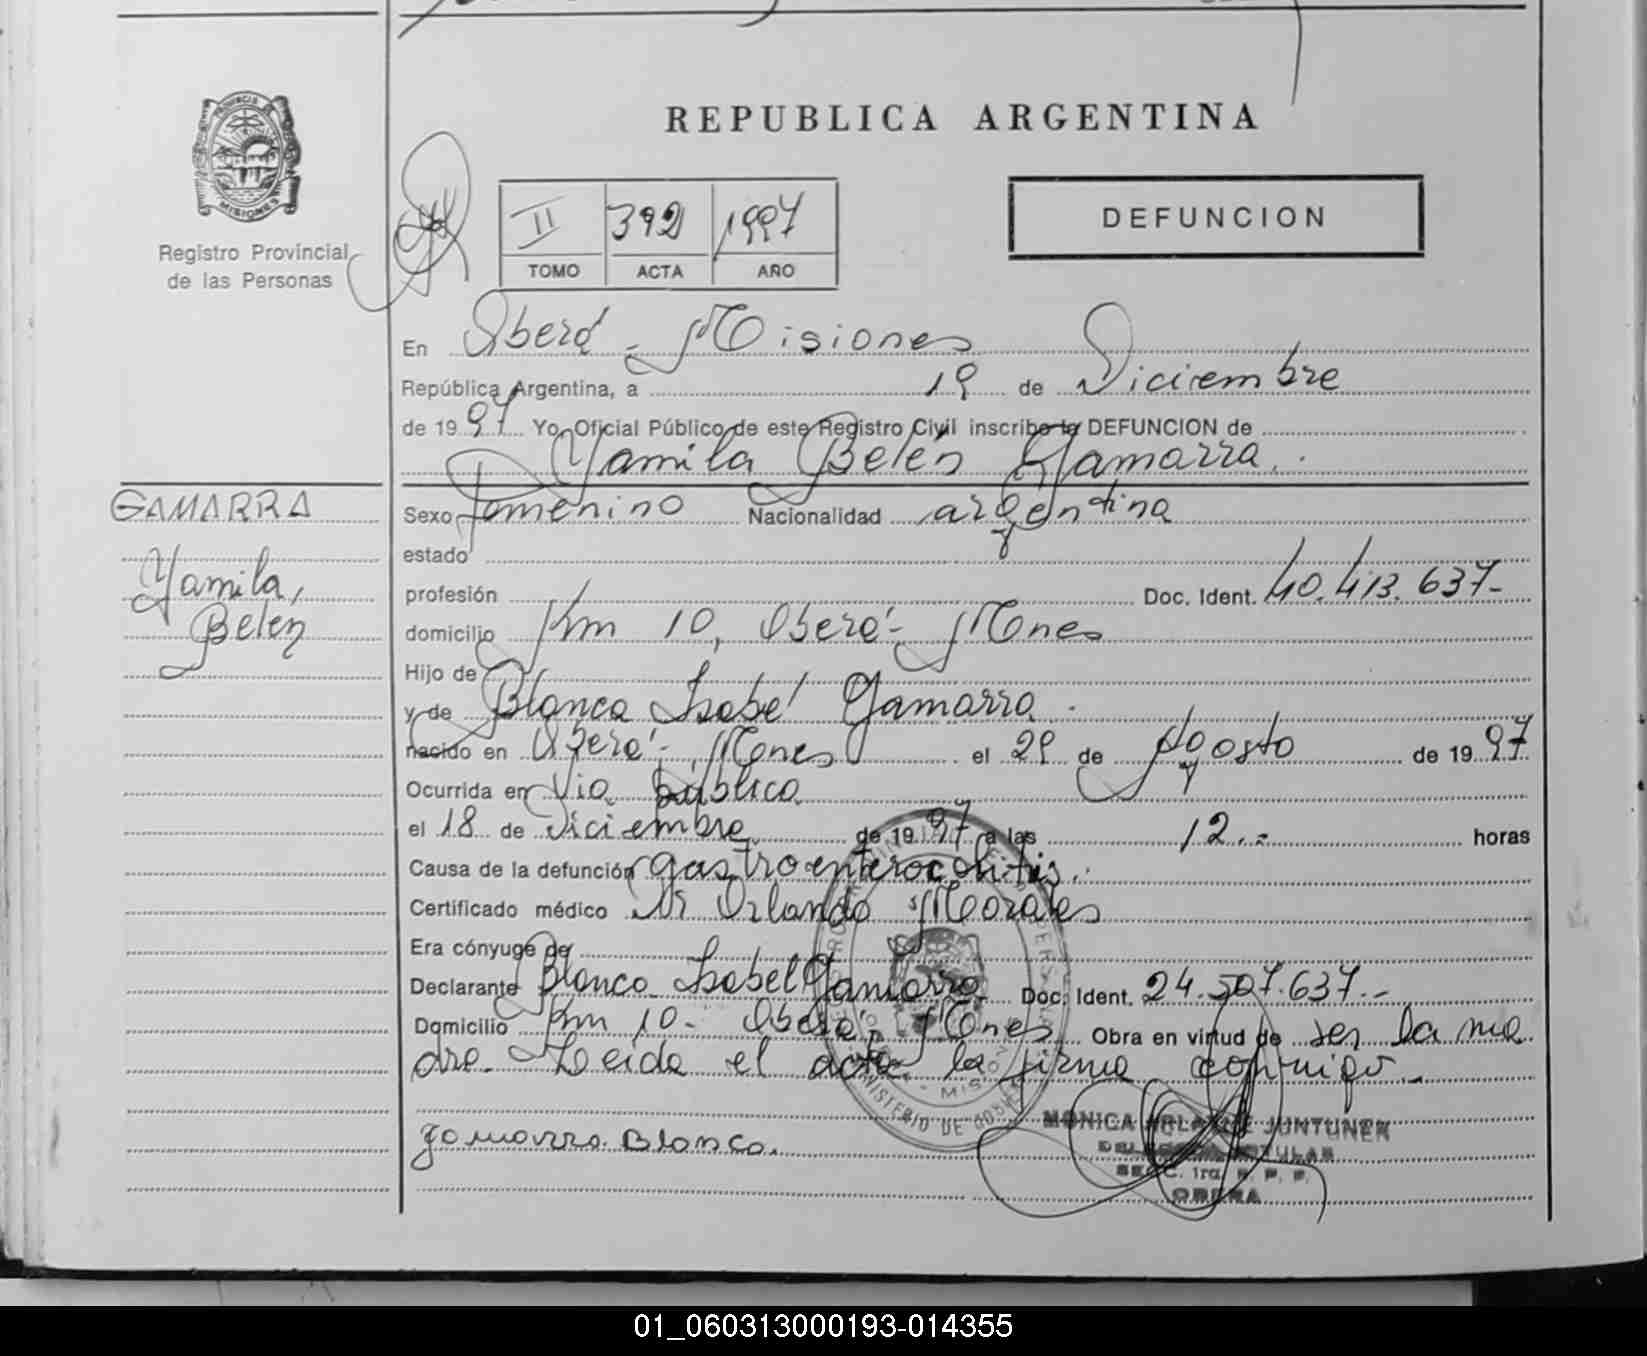 REPUBLICA ARGENTINA
PROVINCIA DE
MISIONES
Registro Provincial
de las Personas
II 392 1997
TOMO ACTA AÑO
DEFUNCION
En Oberá - Misiones
República Argentina, a 19 de Diciembre
de 1997 Yo, Oficial Público de este Registro Civil inscribo la DEFUNCION de
Yamila Belén Gamarra.
GAMARRA
Yamila,
Belén
Sexo femenino Nacionalidad argentina
estado
profesión Doc. Ident. 40.413.637-
domicilio Km 10, Oberá - Mnes
Hijo de
y de Blanca Isabel Gamarra.
nacido en Oberá - Mnes el 29 de Agosto de 1997
Ocurrida en Vía pública
el 18 de Diciembre de 1997 a las 12.- horas
Causa de la defunción gastroenterocolitis.
Certificado médico Dr Orlando Morales
Era cónyuge de
Declarante Blanca Isabel Gamarra Doc. Ident. 24.507.637.-
Domicilio Km 10 - Oberá - Mnes Obra en virtud de ser la ma
dre. Leida el acta la firma conmigo.
Gamarra Blanca.
MONICA JUNTUNEN
SECC. 1ra. R. P. P.
OBERA
MINISTERIO DE GOBIERNO
01_060313000193-014355